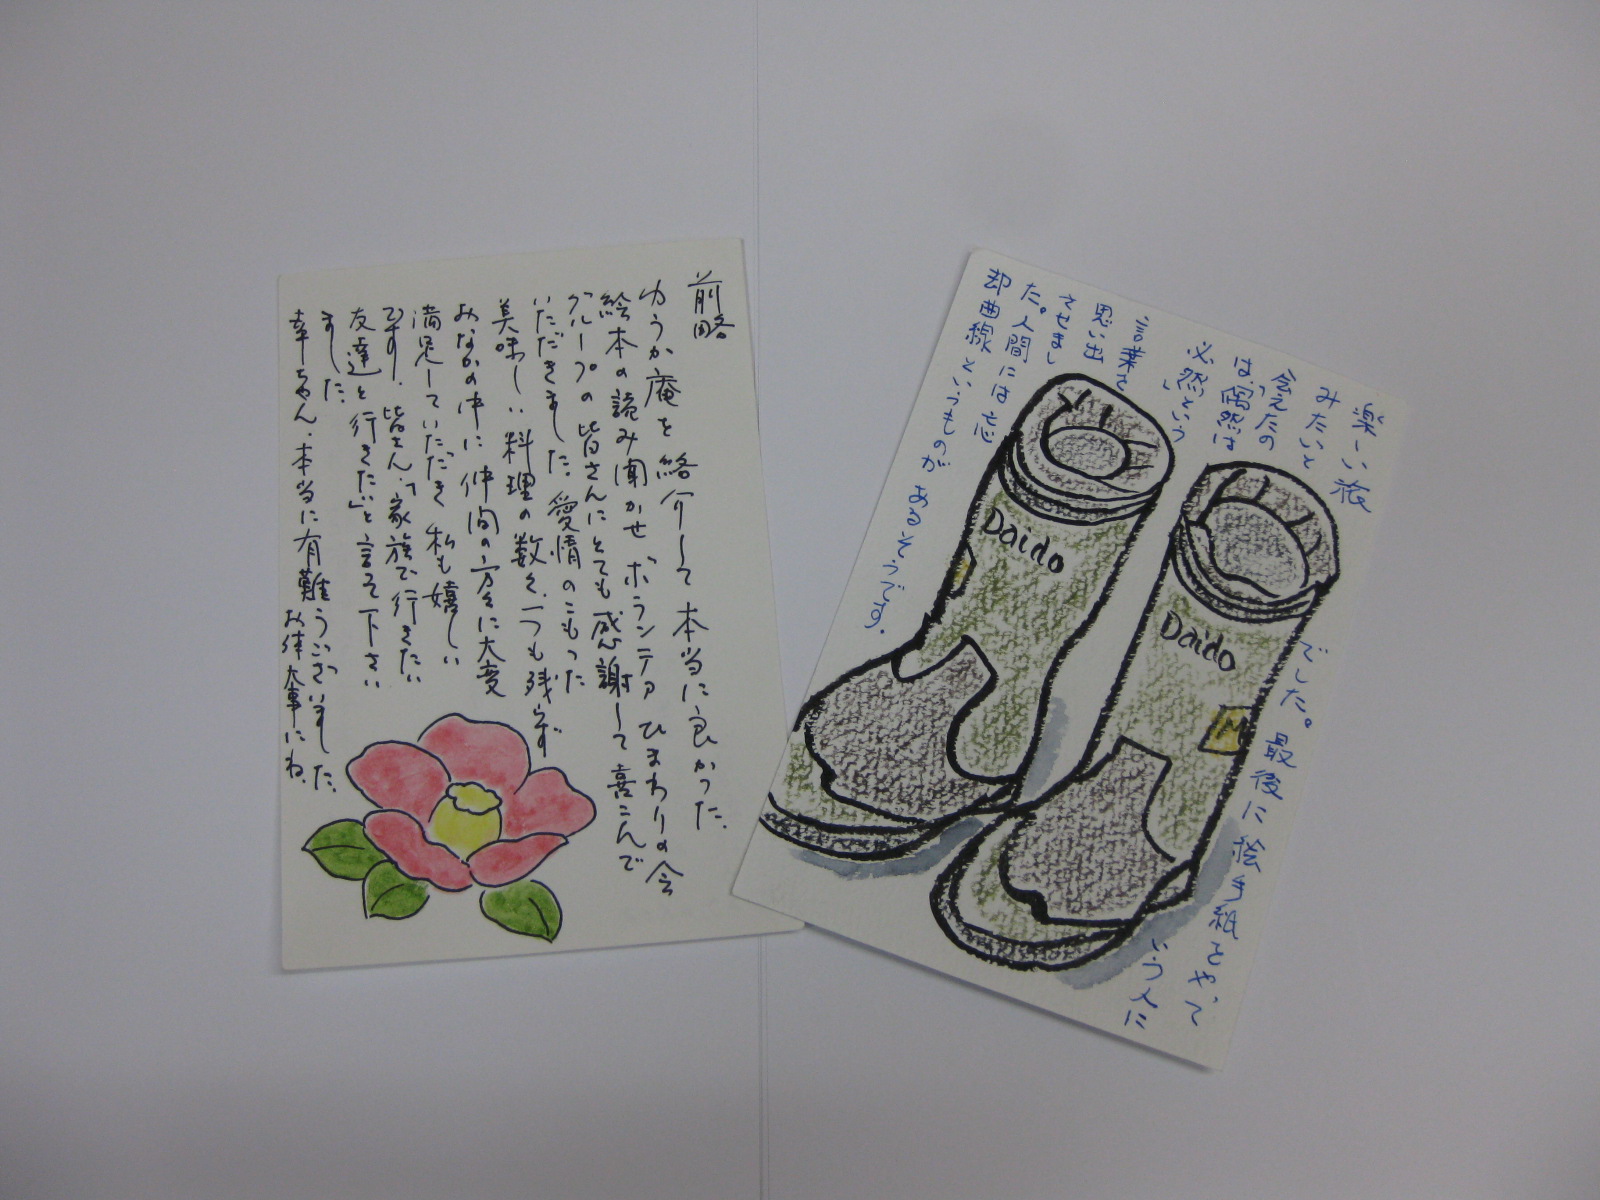 前略
ゆうか庵を紹介して本当に良かった.
絵本の読み聞かせボランティアひまわりの会
グループの皆さんにとても感謝して喜こんで
いただきました。愛情のこもった
美味しい料理の数々、一つも残らず
おなかの中に仲間の方々に大変
満足していただき私も嬉しい
です. 皆さん「家族で行きたい
友達と行きたい」と言って下さい
ました.
幸ちゃん. 本当に有難うございました.
お体大事にね.
楽しい旅でした。最後に絵手紙をやって
みたいという人に
会えたの
は「偶然は
必然という」
言葉を
思い出
させまし
た。人間には忘
却曲線というものがあるそうです.
Daido
Daido